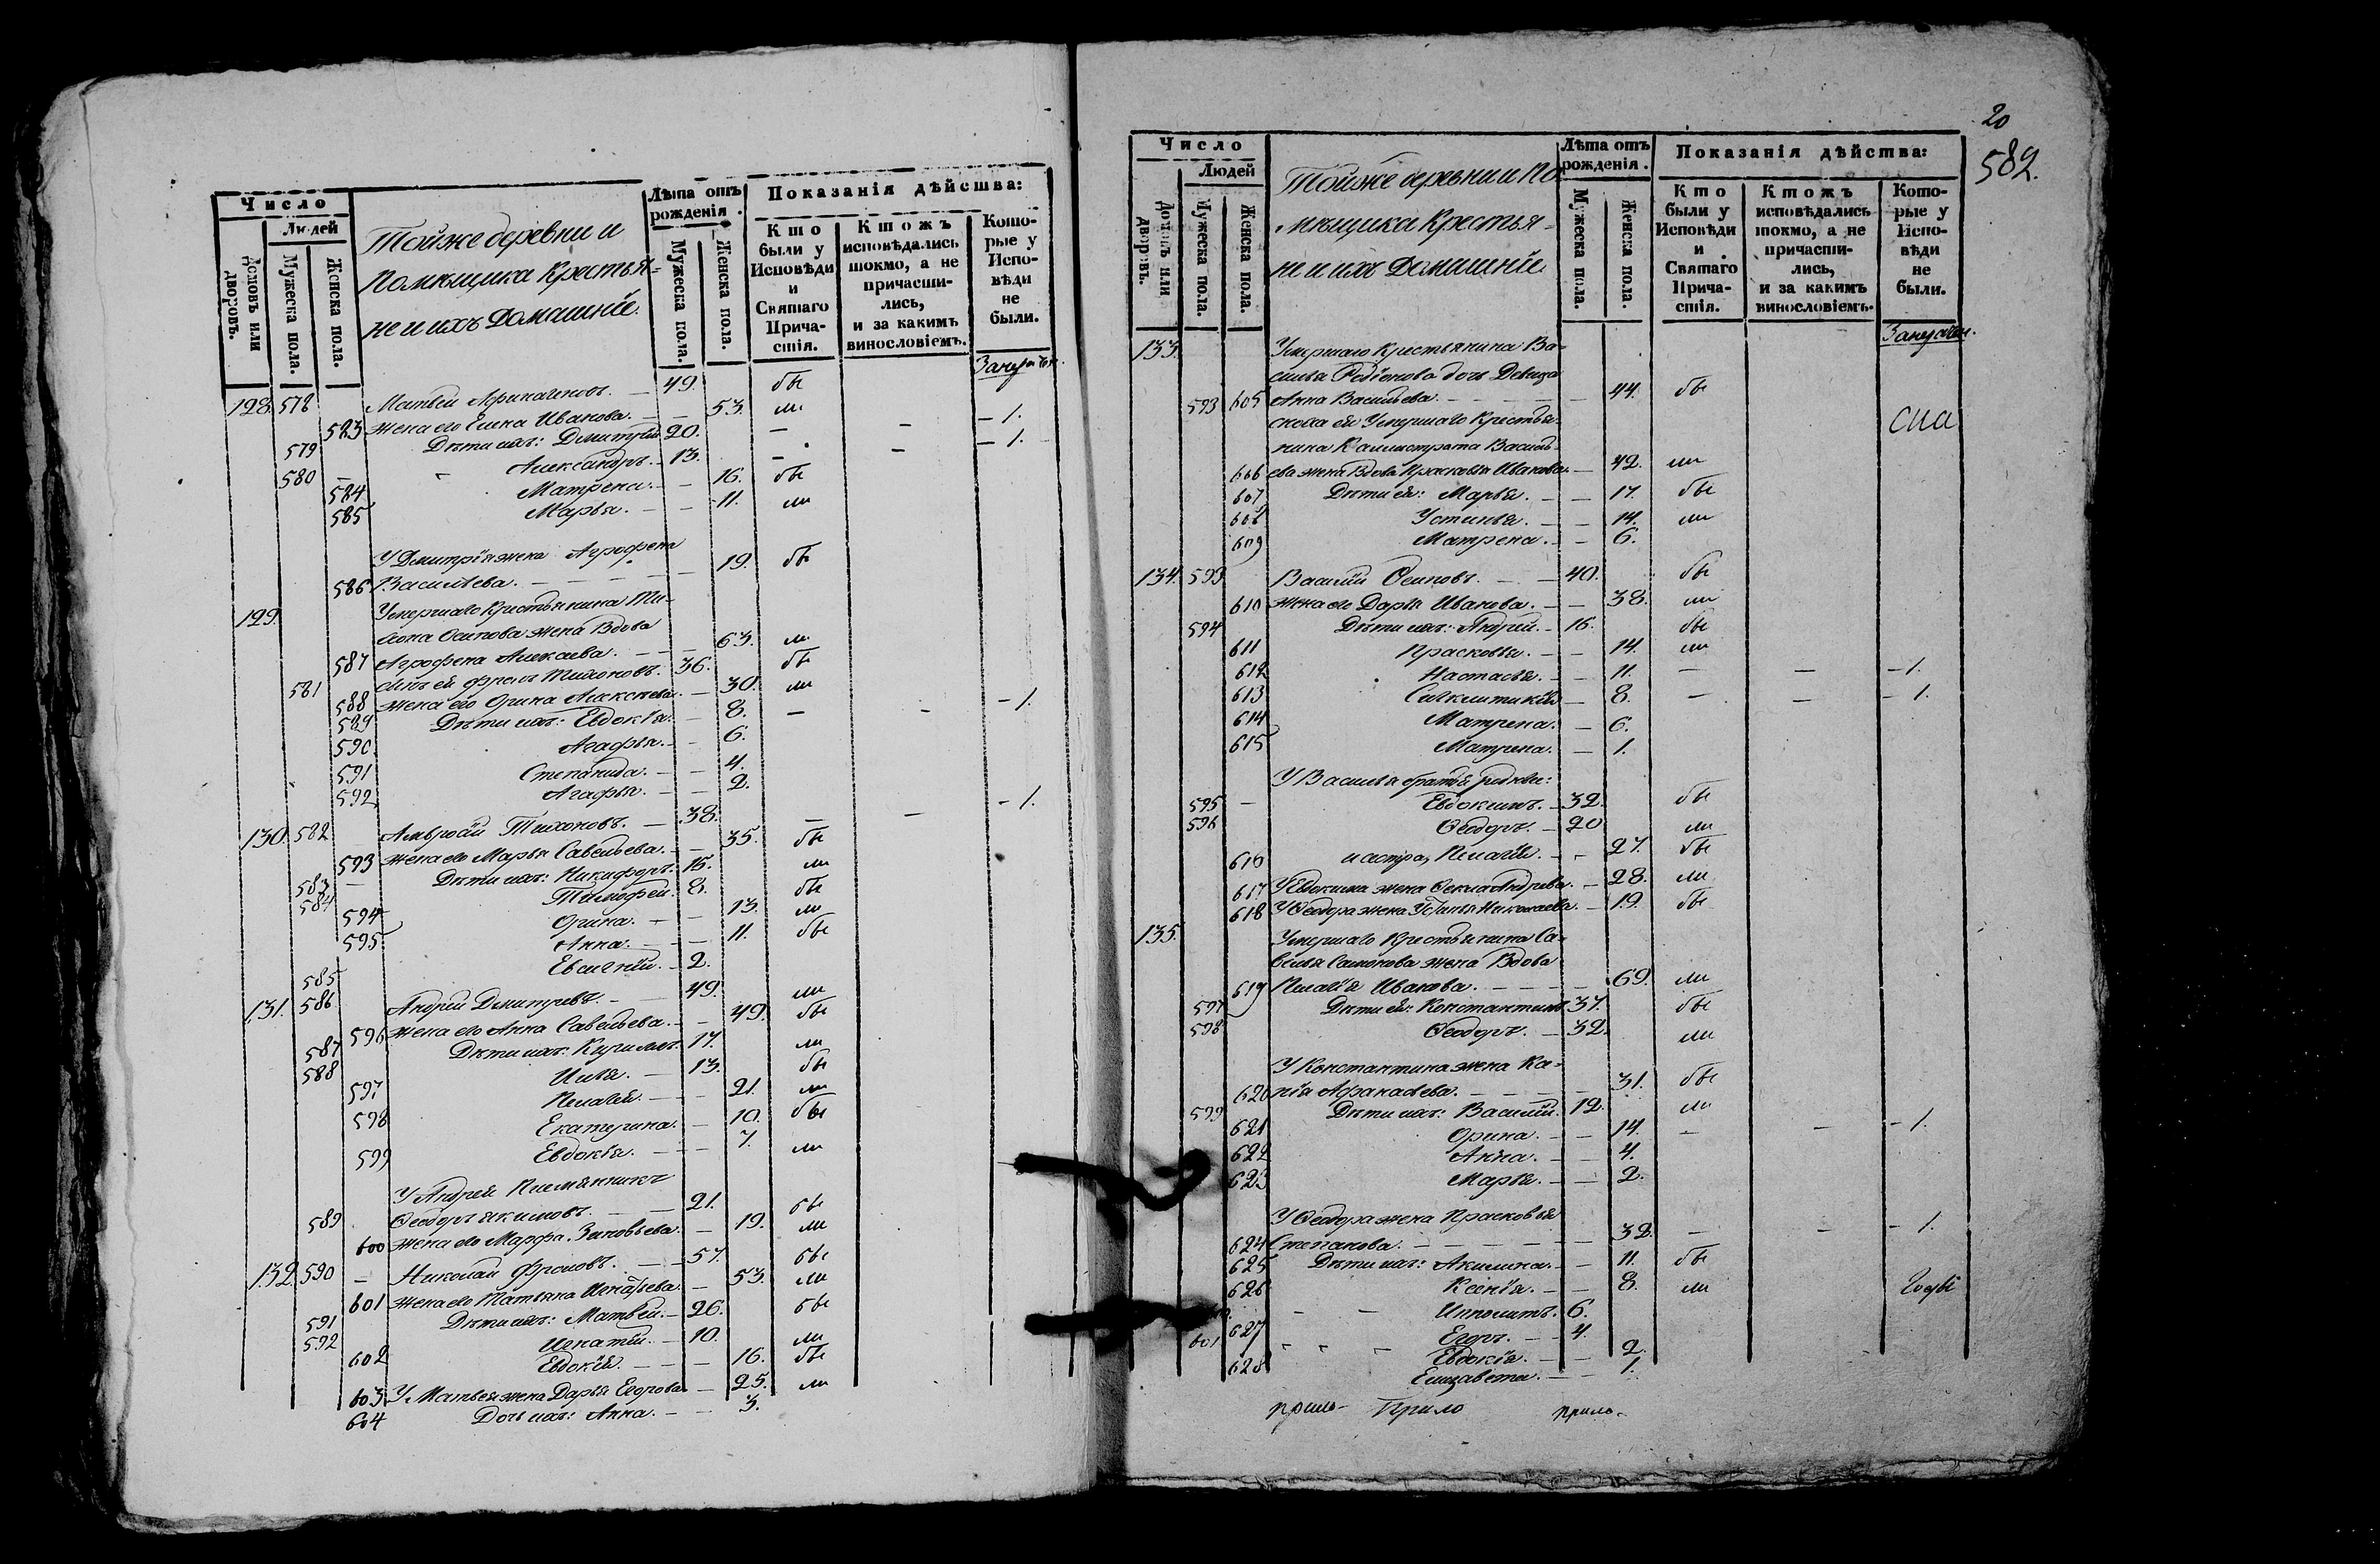 Число
Людей
Домовъ или дворовъ.
Мужеска пола.
Женска пола.
Тойже деревни и
Помѣщика Крестья-
не и ихъ Домашніе.
Лѣта отъ рожденія.
Мужеска пола.
Женска пола.
Показанія дѣйства:
Кто были у Исповѣди и Святаго Причастія.
Ктожъ исповѣдались токмо, а не причастились, и за какимъ винословіемъ.
Которые у Исповѣди не были.
128. 578 Матвей 49. бы
523 жена его Елена Иванова. 53. ли
579 Дѣти ихъ: Дмитрій 20. — — — 1.
580 Александръ. 13. — — — 1.
584 Матрена. 16. бы
585 Марья. 11. ли
У Дмитрія жена Агрофена
586 Васильева. 19. бы
129. Умершаго Крестьянина Ти-
хона Осипова жена Вдова
587 Агрофена 63. ли
581 сынъ ей Фролъ Тихоновъ. 36. бы
588 жена его Орина Алексѣева. 30. ли
589 Дѣти ихъ: Евдокія. 8. — — — 1.
590 Агафья. 6.
591 Степанида. 4.
592 Агафья. 2.
130. 582 Амвросій Тихоновъ. 38. — — — 1.
593 жена его Марья Савельева. 35. бы
583 — Дѣти ихъ: Никифоръ. 15. ли
584 Тимофей. 8. бы
594 Орина. 13. ли
595 Анна. 11. бы
585 Евсигній. 2.
131. 586 Андрей Дмитревъ. 49. ли
596 жена его Анна Савельева. 49. бы
587 Дѣти ихъ: Кирилъ. 17. ли
588 Илья. 13. бы
597 Пелагея. 21. ли
598 Екатерина. 10. бы
599 Евдокія. 7. ли
У Андрея Племянникъ
589 Феодоръ Якимовъ. 21. бы
600 жена его Марфа Зиновьева. 19. ли
132. 590 — Николай Фроловъ. 57. бы
601 жена его Татьяна Игнатьева. 53. ли
591 Дѣти ихъ: Матвей. 26. бы
592 Игнатій. 10. ли
602 Евдокія. 16. бы
603 У Матвея жена Дарья Егорова 25. ли
604 Дочь ихъ: Анна. 3.
20
582.
Число
Людей
Домовъ или дворовъ.
Мужеска пола.
Женска пола.
Тойже деревни и По-
мѣщика Крестья-
не и ихъ Домашніе.
Лѣта отъ рожденія.
Мужеска пола.
Женска пола.
Показанія дѣйства:
Кто были у Исповѣди и Святаго Причастія.
Ктожъ исповѣдались токмо, а не причастились, и за какимъ винословіемъ.
Которые у Исповѣди не были.
133. Умершаго Крестьянина Ва-
силья Родіонова дочь Девица
593 605 Анна Васильева. 44. бы
сноха ей Умершаго Крестья-
нина Каллистрата Василь-
606 ева жена Вдова Прасковья Иванова. 42. ли
607 Дѣти ей: Марья. 17. бы
608 Устинья. 14. ли
609 Матрена. 6.
134. 593 Василій Осиповъ. 40. бы
610 жена его Дарья Иванова. 38. ли
594 Дѣти ихъ: Андрей. 16. бы
611 Прасковья. 14. ли
612 Настасья. 11. — — — 1.
613 8. — — — 1.
614 Матрена. 6.
615 Матрена. 1.
У Василья братья родные:
595 — Евдокимъ. 32. бы
596 Феодоръ. 20 ли
616 и сестра, Пелагія. 27. бы
617 У Евдокима жена Фекла Андреева. 28. ли
618 У Феодора жена Устинья Николаева. 19. бы
135. Умершаго Крестьянина Са-
велья жена Вдова
619 Пелагія Иванова. 69. ли
597 Дѣти ей: Константинъ. 37. бы
598 Феодоръ. 32. ли
У Константина жена Ка-
620 пія Афанасьева. 31. бы
599 Дѣти ихъ: Василій. 12. ли
621 Орина. 14. — — — 1.
622 Анна. 4.
623 Марья. 2.
У Феодора жена Прасковья
624 Степанова. 32. — — — 1.
625 Дѣти ихъ: Акилина. 11. бы
626 Ксенія. 8. ли
Ипполитъ. 6.
601 Егоръ. 4.
627 Евдокія. 2.
628 Елизавета. 1.